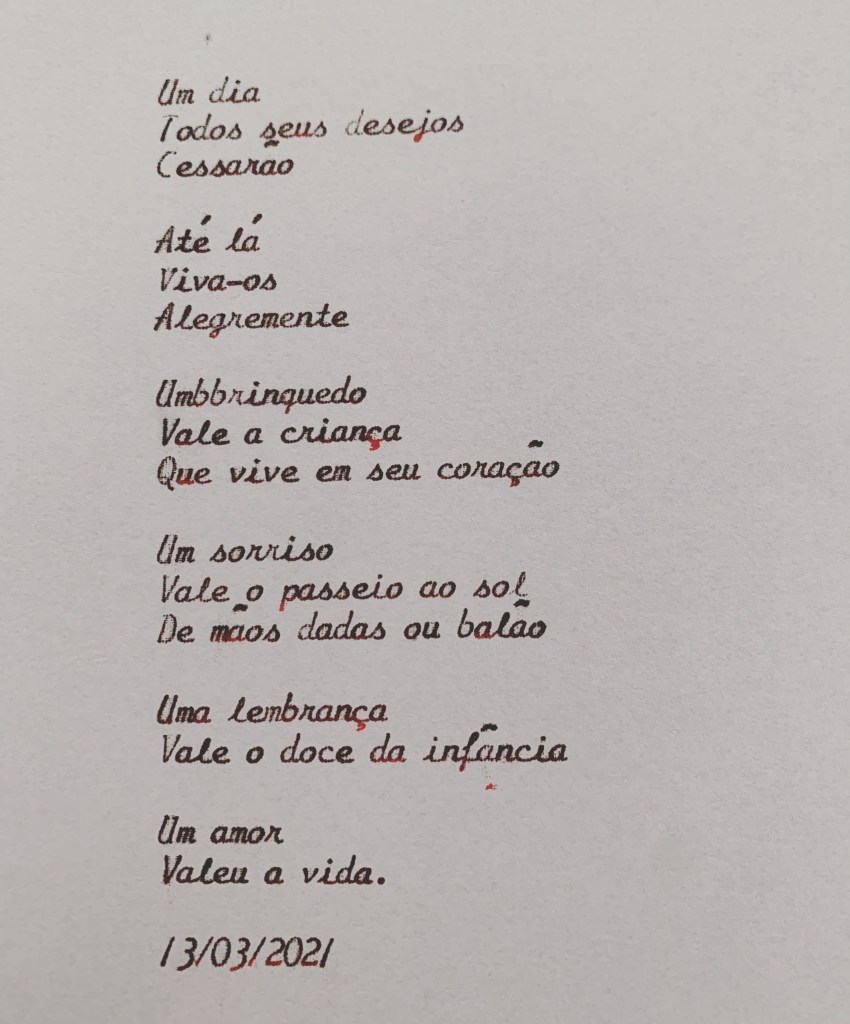 Um dia
Todos seus desejos
Cessarão
Até lá
Viva-os
Alegremente
Umbbrinquedo
Vale a criança
Que vive em seu coração
Um sorriso
Vale o passeio ao sol
De mãos dadas ou balão
Uma lembrança
Vale o doce da infância
Um amor
Valeu a vida.
13/03/2021